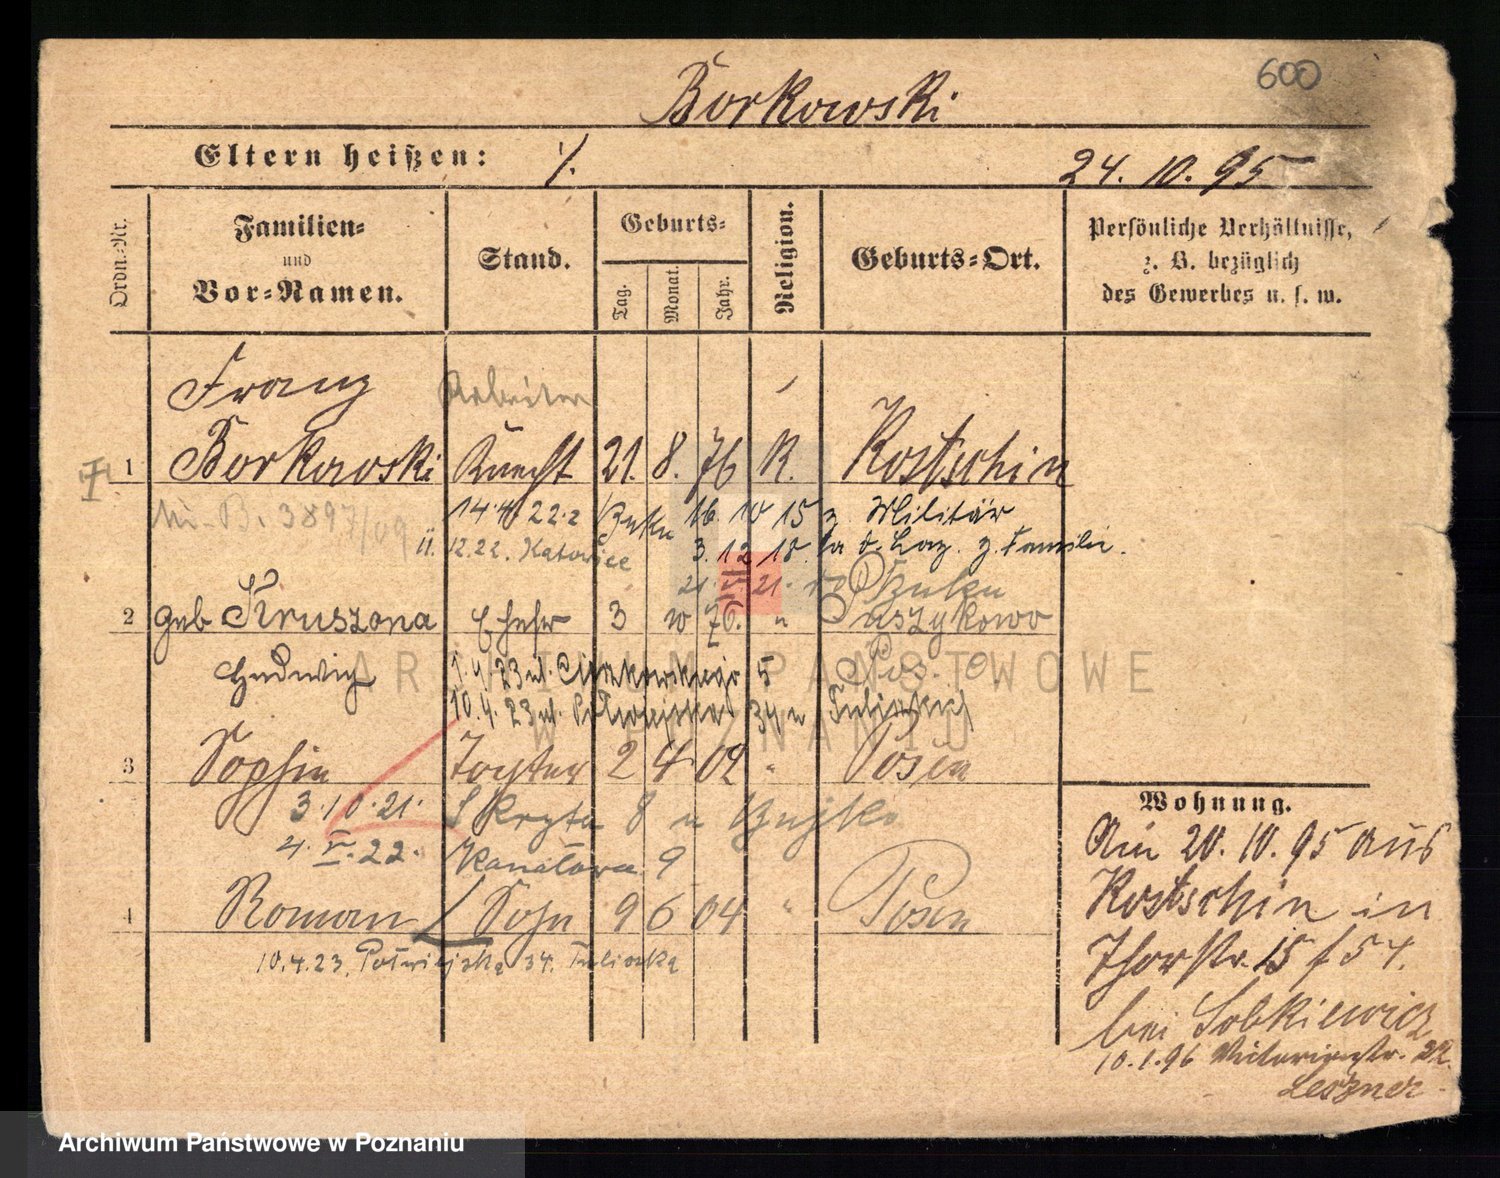 600
Borkowski
Eltern heißen: ./.
24. 10. 95
Ordn.-Nr.
Familien-
und
Vor-Namen.
Stand.
Geburts-
Tag.
Monat.
Jahr.
Religion.
Geburts-Ort.
Persönliche Verhältnisse,
z. B. bezüglich
des Gewerbes u. s. w.
Franz
Arbeiter
1 Borkowski Knecht 21. 8. 76 K. Kostschin
B. 3897/09 14.4. 22.2 Buku 16 10 15 z. Militär
12.22. Katowice 3. 12 18. Laz. z. Familie.
21. 21. Buku
2 geb Kruszona Ehefr 3 10 76. " Puszykowo
Hedwig 1.4. 23 ul. 5
10.4. 23 ul. 34
3 Sophie Tochter 2 4 02 " Posen
3.10.21. Skryta 8
4. V. 22. Kanałowa 9
4 Roman Sohn 9 6 04 " Posen
10.4.23. 34.
Wohnung.
Am 20. 10. 95 aus
Kostschin in
Thorstr. 15 f 54.
bei Sobkiewicz
10.1.96 Victoriastr. 22.
Leszner
ARCHIWUM PAŃSTWOWE
W POZNANIU
Archiwum Państwowe w Poznaniu